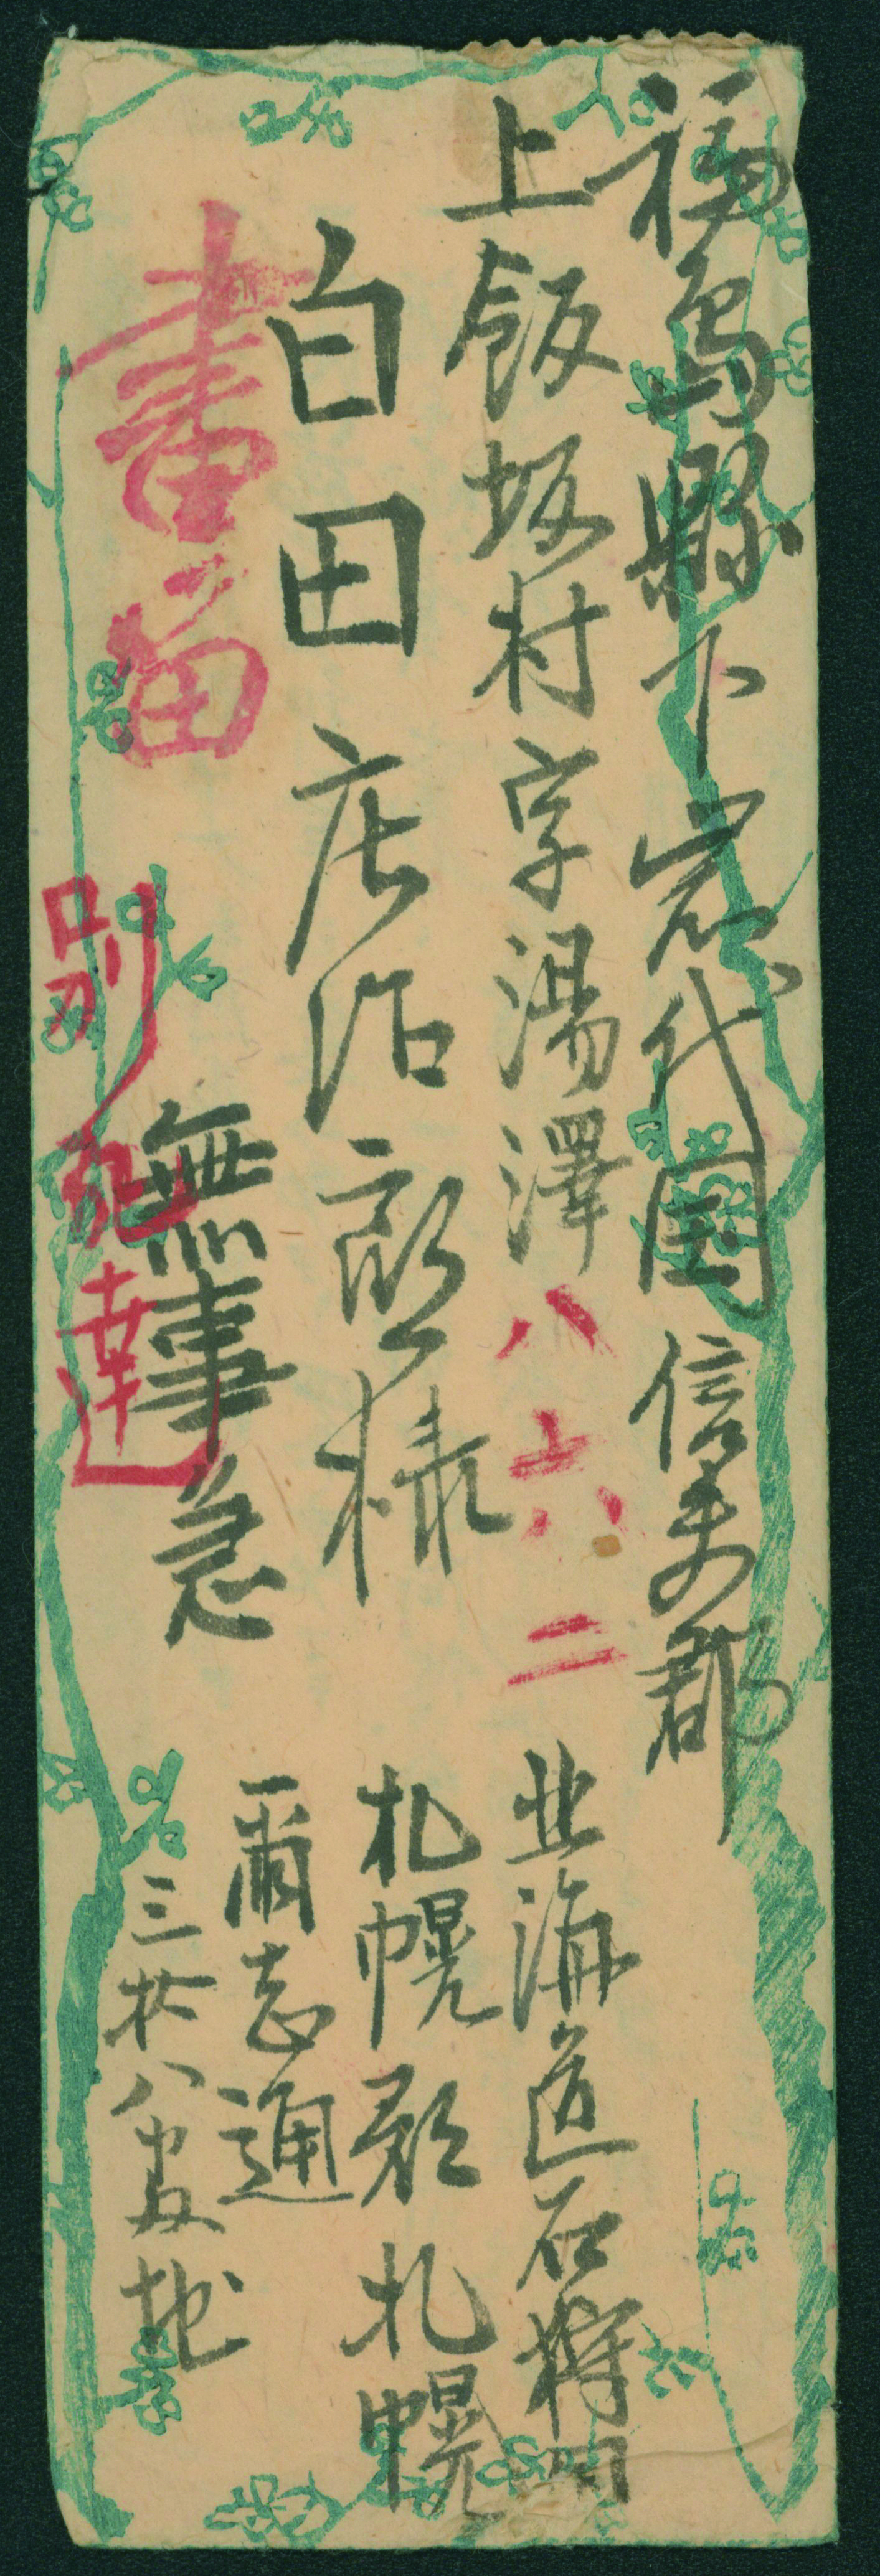 福島縣下岩代国信夫郡
上飯坂村字湯澤
八六二
白田庄治郎様
無事急
書留
別配達
北海道石狩国
札幌郡札幌
爾志通
三拾八番地